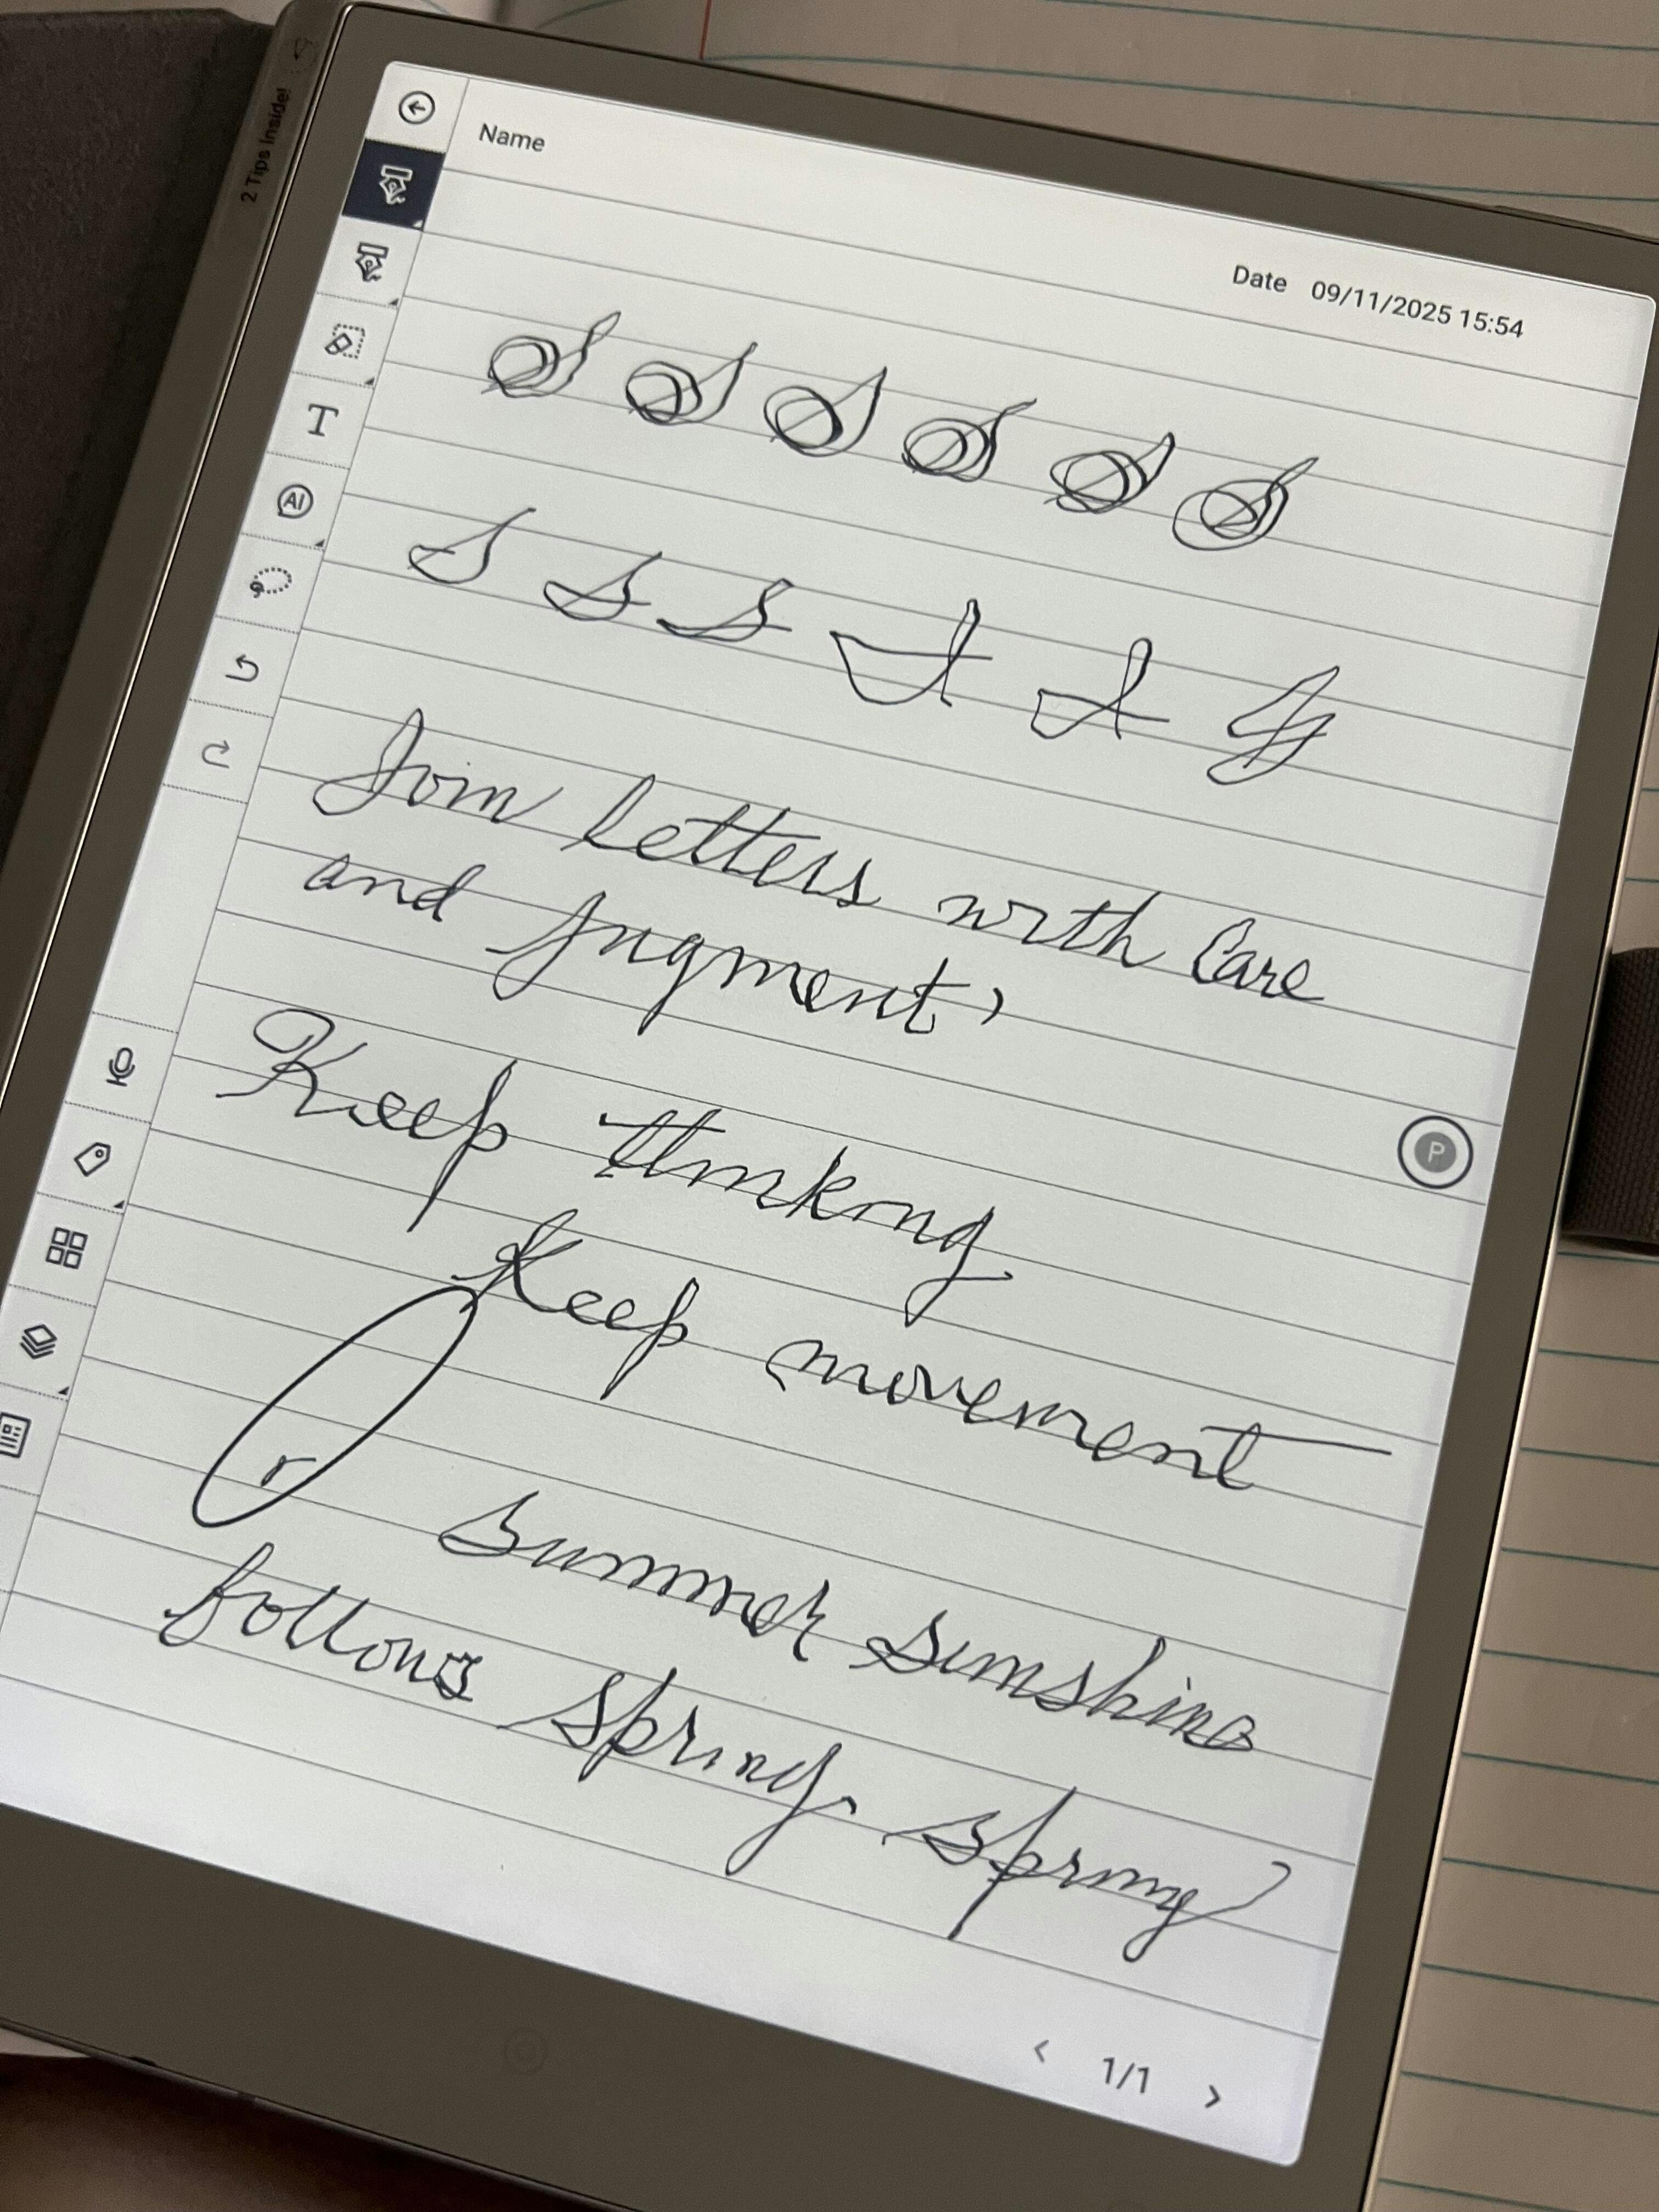 2 Tips Inside!
Name
Date 09/11/2025 15:54
T
AI
S S S
Join letters with Care
and jugment,
Keep thinking
Keep movement
P
r
Summer sunshine
follows spring. Spring
1/1